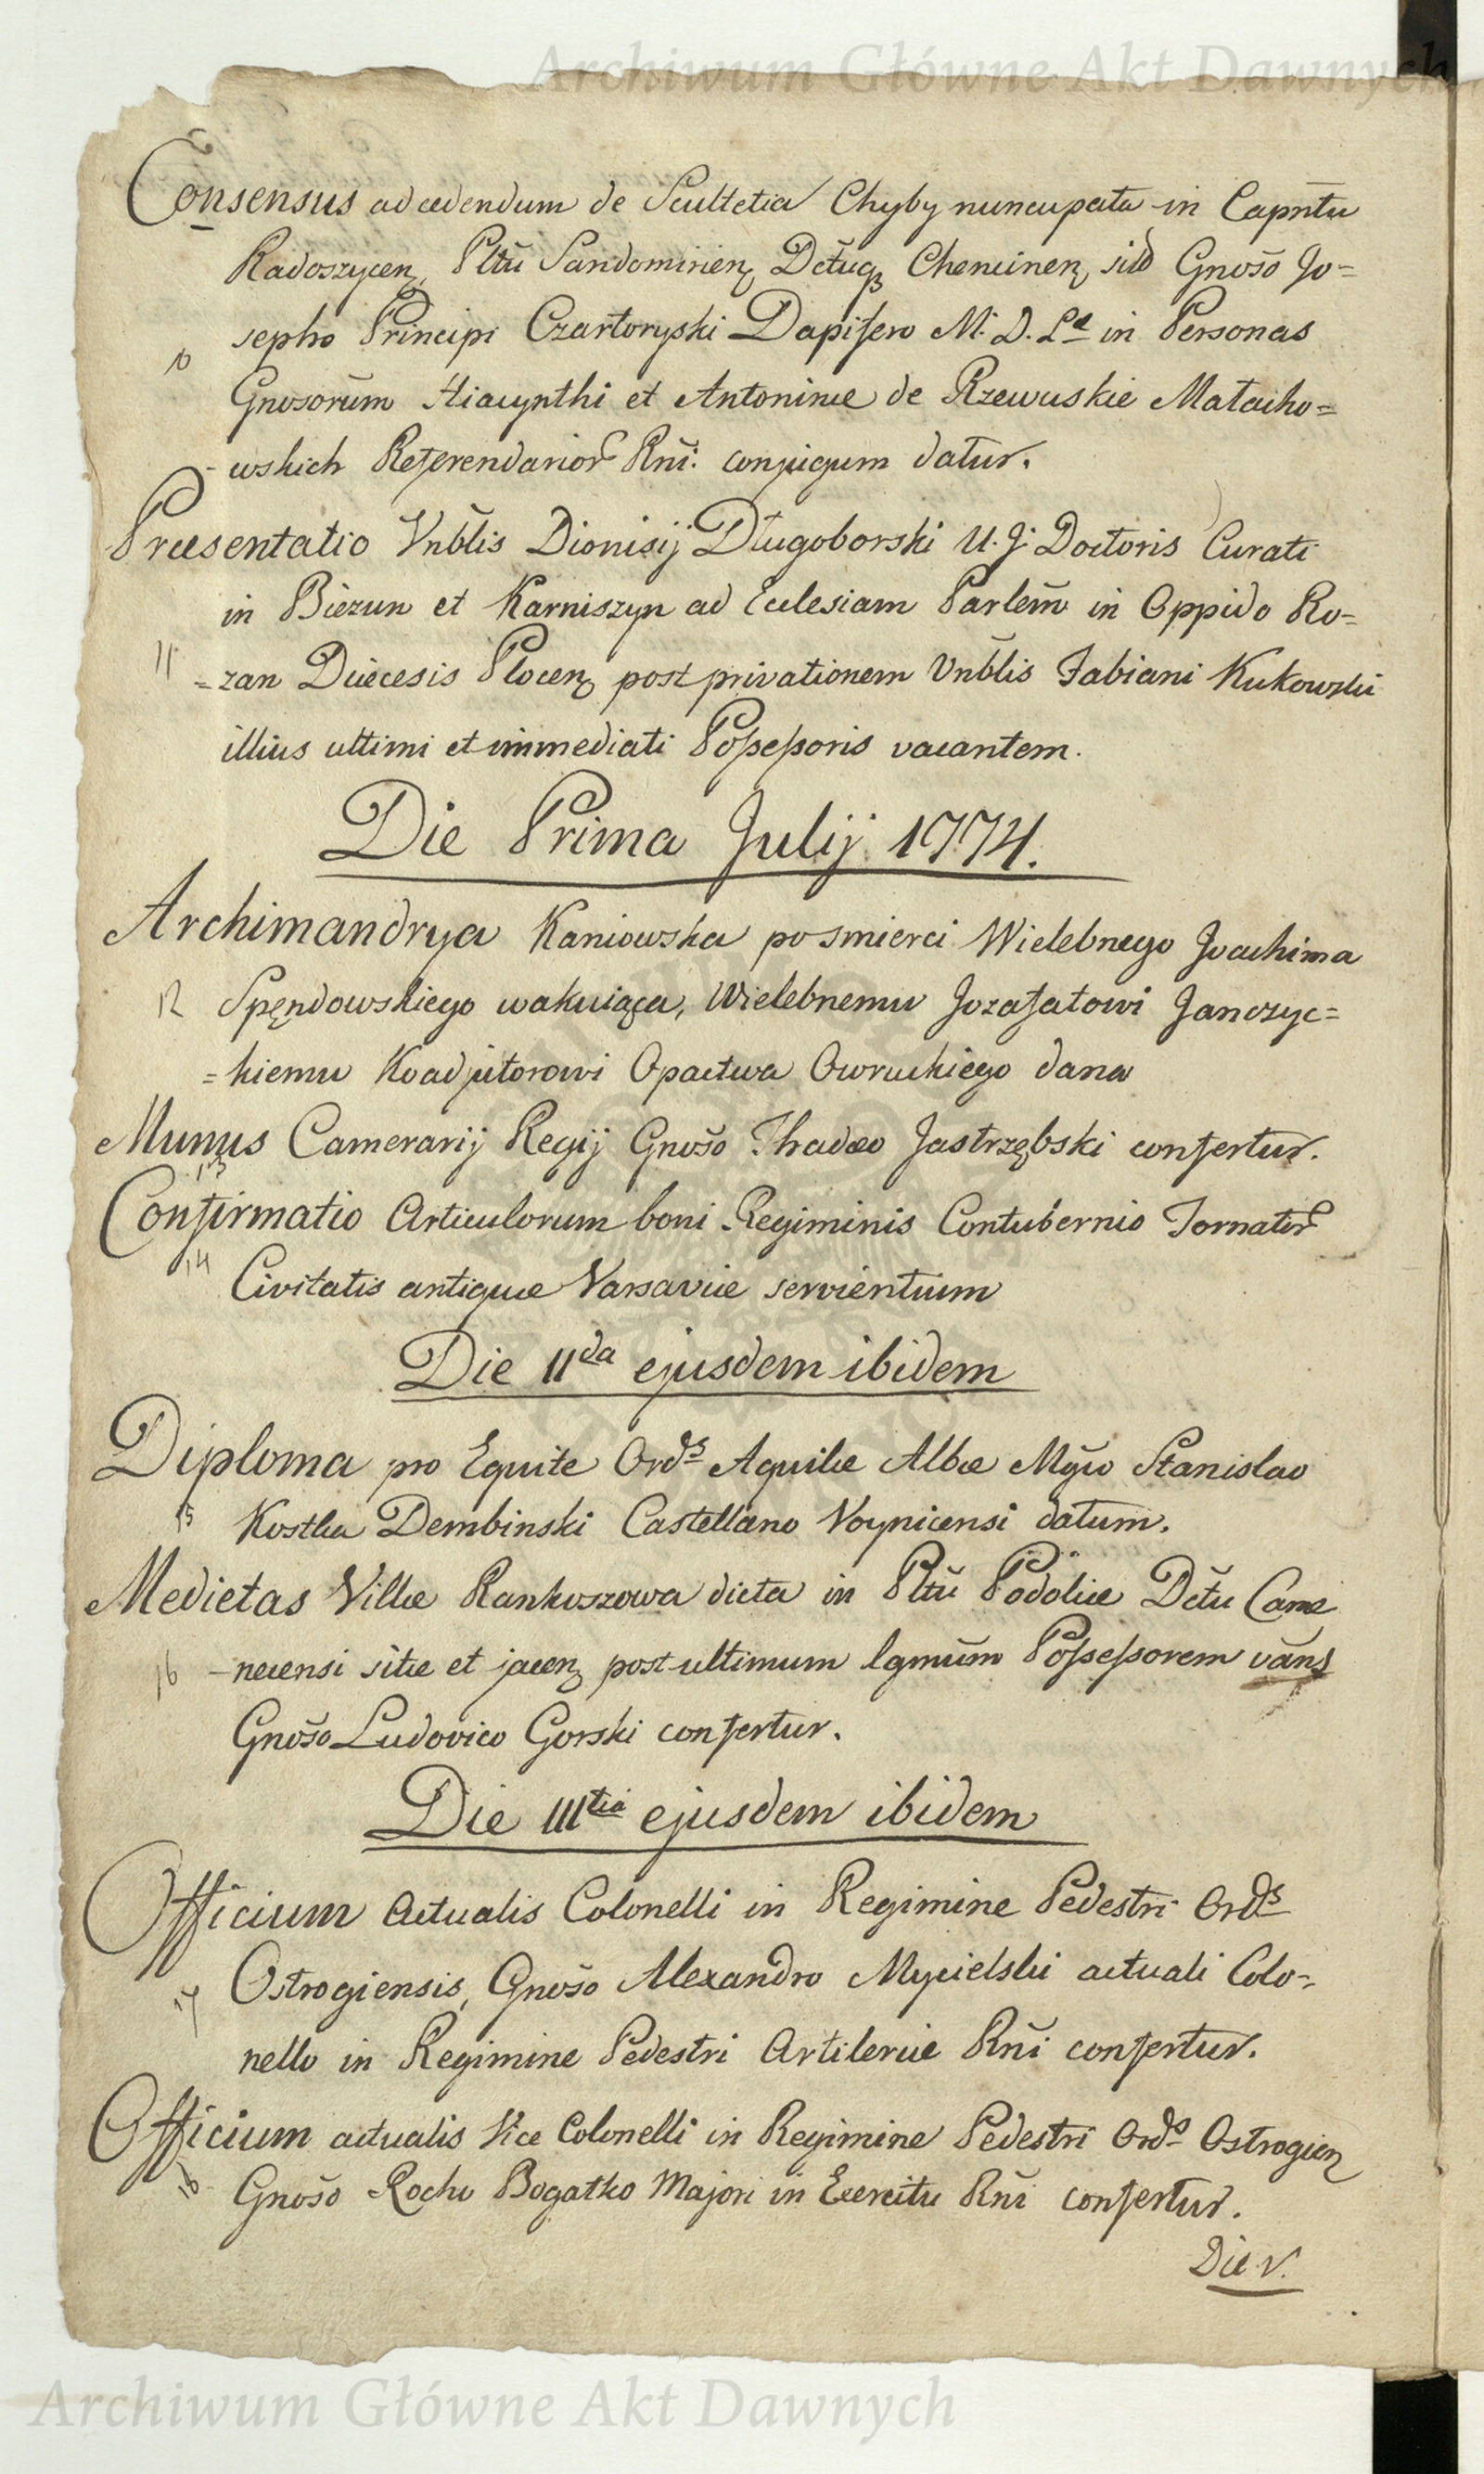 Archiwum Główne Akt Dawnych
Consensus ad cedendum de Scultetia Chyby nuncupata in Capntu
Radoszycen, Pltũ Sandomirien, Dctuq, Chencinen, sito Gnoso Jo=
sepho Principi Czartoryski Dapifero M. D. L. in Personas
10
Gnosorum Hiacynthi et Antoninæ de Rzewuskie Małacho=
wskich Referendarior Rni. conjugum datur.
Præsentatio Vnblis Dionisij Długoborski U. J. Doctoris Curati
in Biezun et Karniszyn ad Ecclesiam Parlem in Oppido Ro=
11 =zan Diæcesis Plocen, post privationem Vnblis Fabiani Kukowski
illius ultimi et immediati Poßeßoris vacantem.
Die Prima Julij 1774.
Archimandrya Kaniowska po smierci Wielebnego Joachima
12 Spęndowskiego wakuiąca, Wielebnemu Jozafatowi Janczyc=
=kiemu Koadjutorowi Opactwa Owruckiego dana
Munus Camerarij Regij Gnoso Thadæo Jastrzębski confertur.
13
Confirmatio Articulorum boni Regiminis Contubernio Tornator
14 Civitatis antiquæ Varsaviæ servientium
Die IIda ejusdem ibidem
Diploma pro Equite Ords Aquilæ Albæ Mgco Stanislao
15 Kostka Dembinski Castellano Voynicensi datum.
Medietas Villæ Rankoszowa dicta in Pltũ Podoliæ Dctu Came
16 -necensi sitæ et jacen, post ultimum lgmum Poßeßorem vans
Gnoso Ludovico Gorski confertur.
Die IIItia ejusdem ibidem
Officium Actualis Colonelli in Regimine Pedestri Ords
17 Ostrogiensis, Gnoso Alexandro Mycielski actuali Colo-
nello in Regimine Pedestri Artileriæ Rni confertur.
Officium actualis Vice Colonelli in Regimine Pedestri Ords Ostrogien
18 Gnoso Rocho Bogatko Majori in Exercitu Rni confertur.
Die V.
Archiwum Główne Akt Dawnych